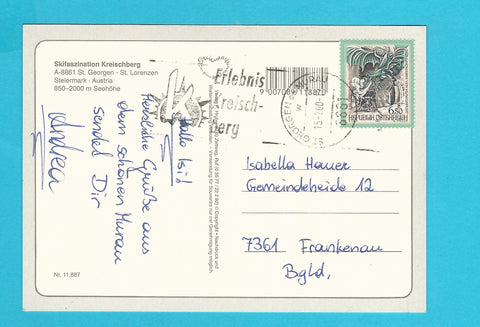 Skifaszination Kreischberg
A-8861 St. Georgen · St. Lorenzen
Steiermark · Austria
850–2000 m Seehöhe
Hallo Isi!
Herzliche Grüße aus
dem schönen Murau
sendet Dir
Andrea
Nr. 11.887
Erlebnis
Kreisch-
berg
ST. GEORGEN
MURAU
6.50
REPUBLIK ÖSTERREICH
Isabella Hauer
Gemeindeheide 12
7361 Frankenau
Bgld.